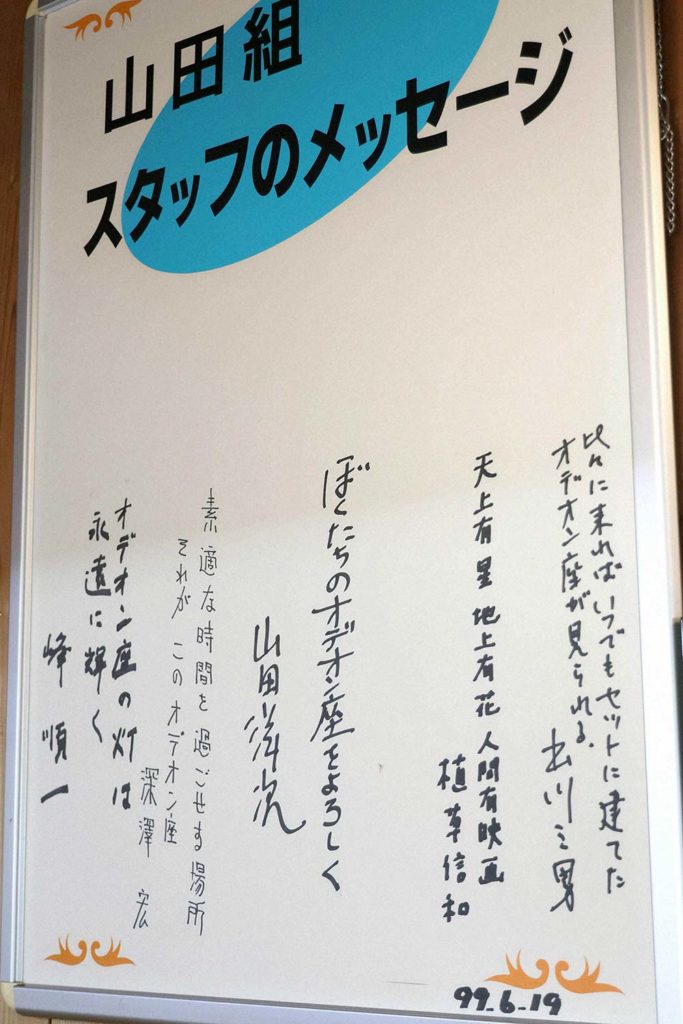 山田組
スタッフのメッセージ
此々に来ればいつでもセットに建てた
オデオン座が見られる。
出川三男
天上有星 地上有花 人間有映画
植草信和
ぼくたちのオデオン座をよろしく
山田洋次
素適な時間を過ごせする場所
それが このオデオン座
深澤 宏
オデオン座の灯は
永遠に輝く
峰 順一
99.6.19